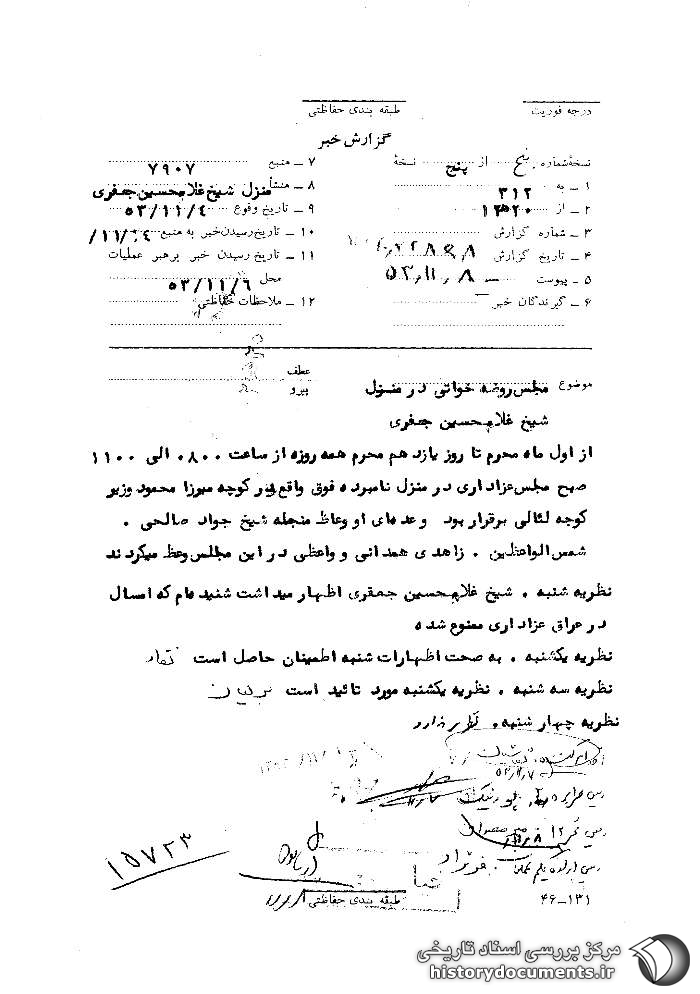 درجه فوریت
طبقه بندی حفاظتی
گزارش خبر
نسخهٔ شماره پنج از پنج نسخهٔ
۷ ــ منبع ۷۹۰۷
۱ ــ به ۳۱۲
۸ ــ منشأ منزل شیخ غلامحسین جعفری
۲ ــ از
۹ ــ تاریخ وقوع ۵۳/۱۱/۴
۳ ــ شماره گزارش
۱۰ ــ تاریخ رسیدن خبر به منبع
۴ ــ تاریخ گزارش
۱۱ ــ تاریخ رسیدن خبر برهبر عملیات
۵ ــ پیوست
محل ۵۳/۱۱/۶
۶ ــ گیرندگان خبر
۱۲ ــ ملاحظات حفاظتی
عطف
موضوع مجلس روضه خوانی در منزل
پیرو
شیخ غلامحسین جعفری
از اول ماه محرم تا روز یازدهم محرم همه روزه از ساعت ۰۸۰۰ الی ۱۱۰۰
صبح مجلس عزاداری در منزل نامبرده فوق واقع در کوچه میرزا محمود وزیر
کوچه لئالی برقرار بود وعده‌ای او وعاظ منجله شیخ جواد صالحی .
شمس الواعظین . زاهدی همدانی و واعظی در این مجلس وعظ میکردند
نظریه شنبه . شیخ غلامحسین جعفری اظهار میداشت شنیده‌ام که امسال
در عراق عزاداری ممنوع شده
نظریه یکشنبه . به صحت اظهارات شنبه اطمینان حاصل است
نظریه سه شنبه . نظریه یکشنبه مورد تائید است
نظریه چهار شنبه . نظری ندارد
۱۵۷۲۳
طبقه بندی حفاظتی
۴۶-۱۳۱
مرکز بررسی اسناد تاریخی
historydocuments.ir